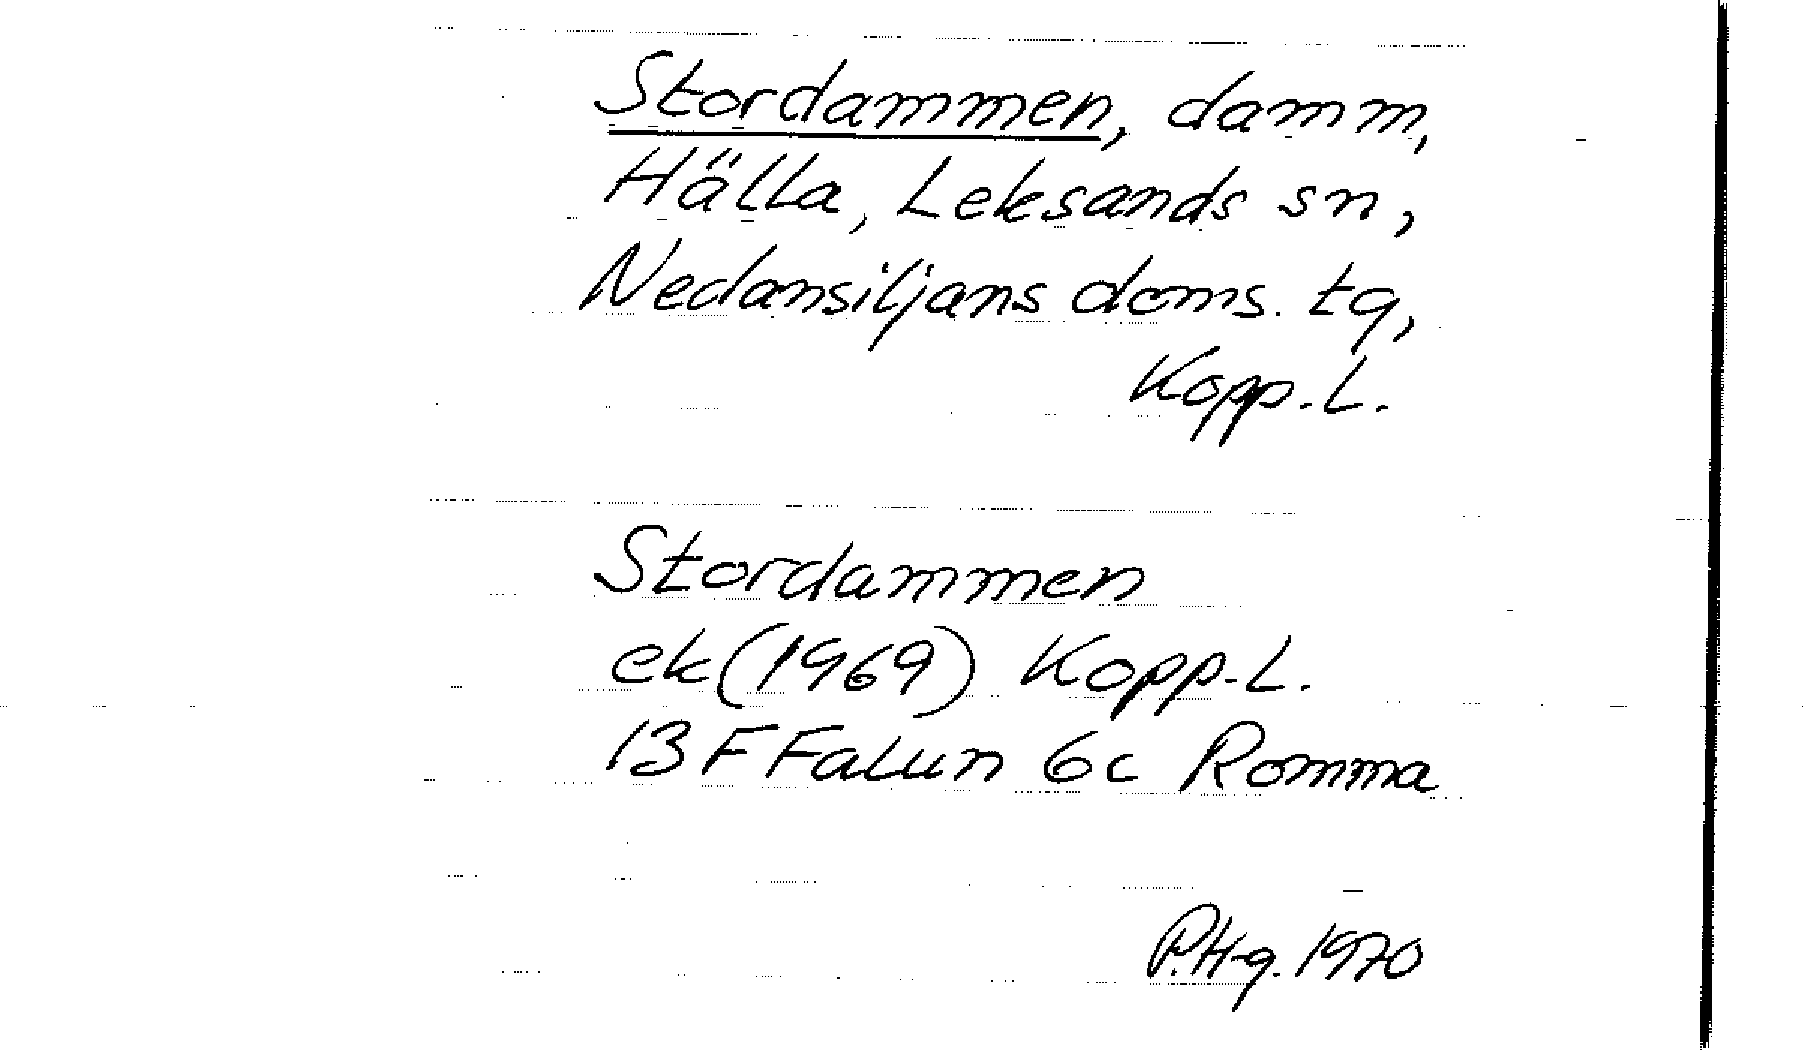 Stordammen, damm,
Hälla, Leksands sn,
Nedansiljans doms. tg,
Kopp. L.
Stordammen
ek (1969) Kopp. L.
13 F Falun 6c Romma
P.H-g. 1970